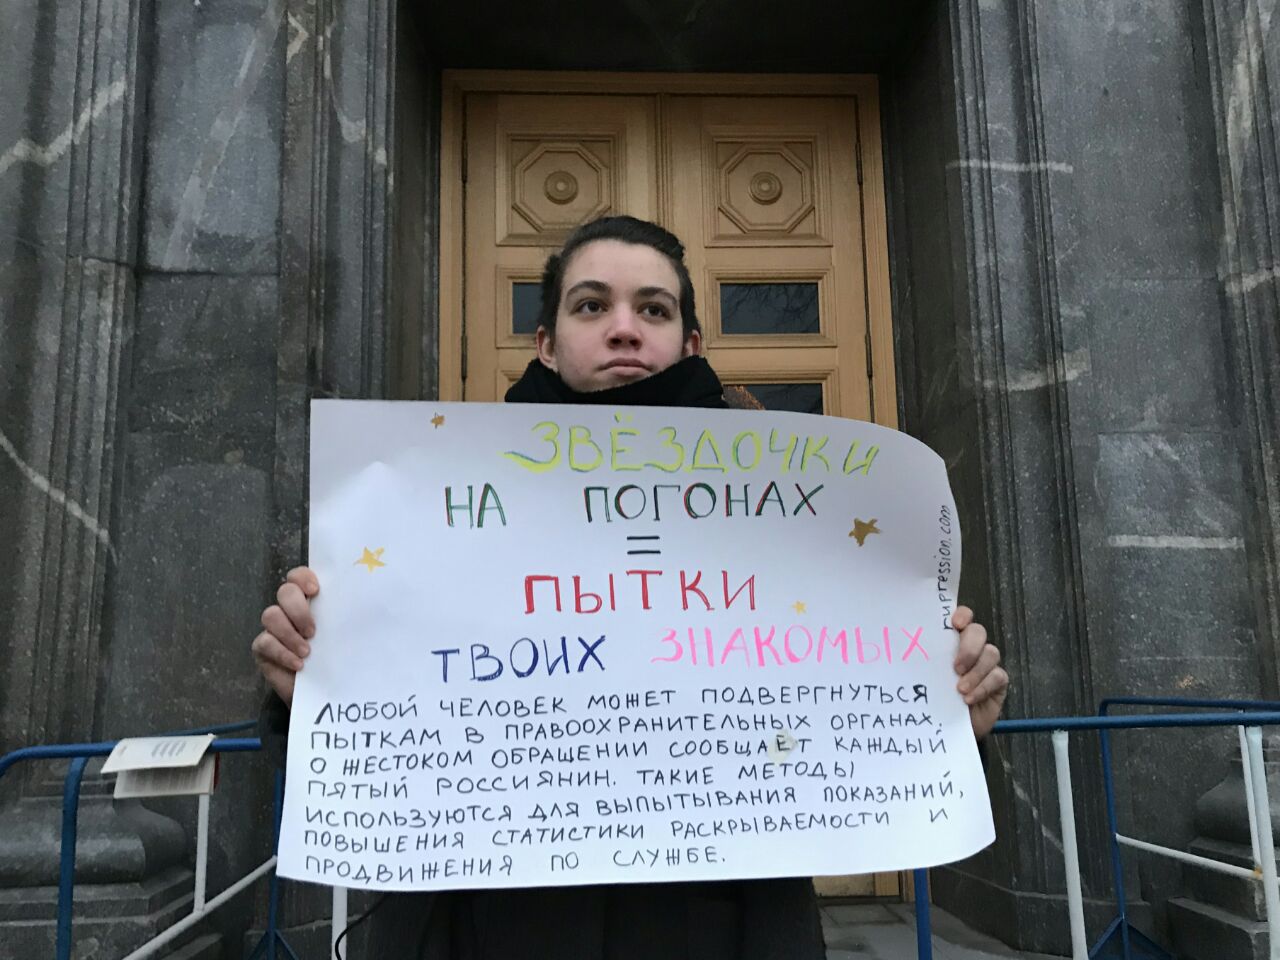 ЗВЁЗДОЧКИ
НА ПОГОНАХ
=
ПЫТКИ
ТВОИХ ЗНАКОМЫХ
ЛЮБОЙ ЧЕЛОВЕК МОЖЕТ ПОДВЕРГНУТЬСЯ
ПЫТКАМ В ПРАВООХРАНИТЕЛЬНЫХ ОРГАНАХ.
О ЖЕСТОКОМ ОБРАЩЕНИИ СООБЩАЕТ КАЖДЫЙ
ПЯТЫЙ РОССИЯНИН. ТАКИЕ МЕТОДЫ
ИСПОЛЬЗУЮТСЯ ДЛЯ ВЫПЫТЫВАНИЯ ПОКАЗАНИЙ,
ПОВЫШЕНИЯ СТАТИСТИКИ РАСКРЫВАЕМОСТИ И
ПРОДВИЖЕНИЯ ПО СЛУЖБЕ.
rupression.com